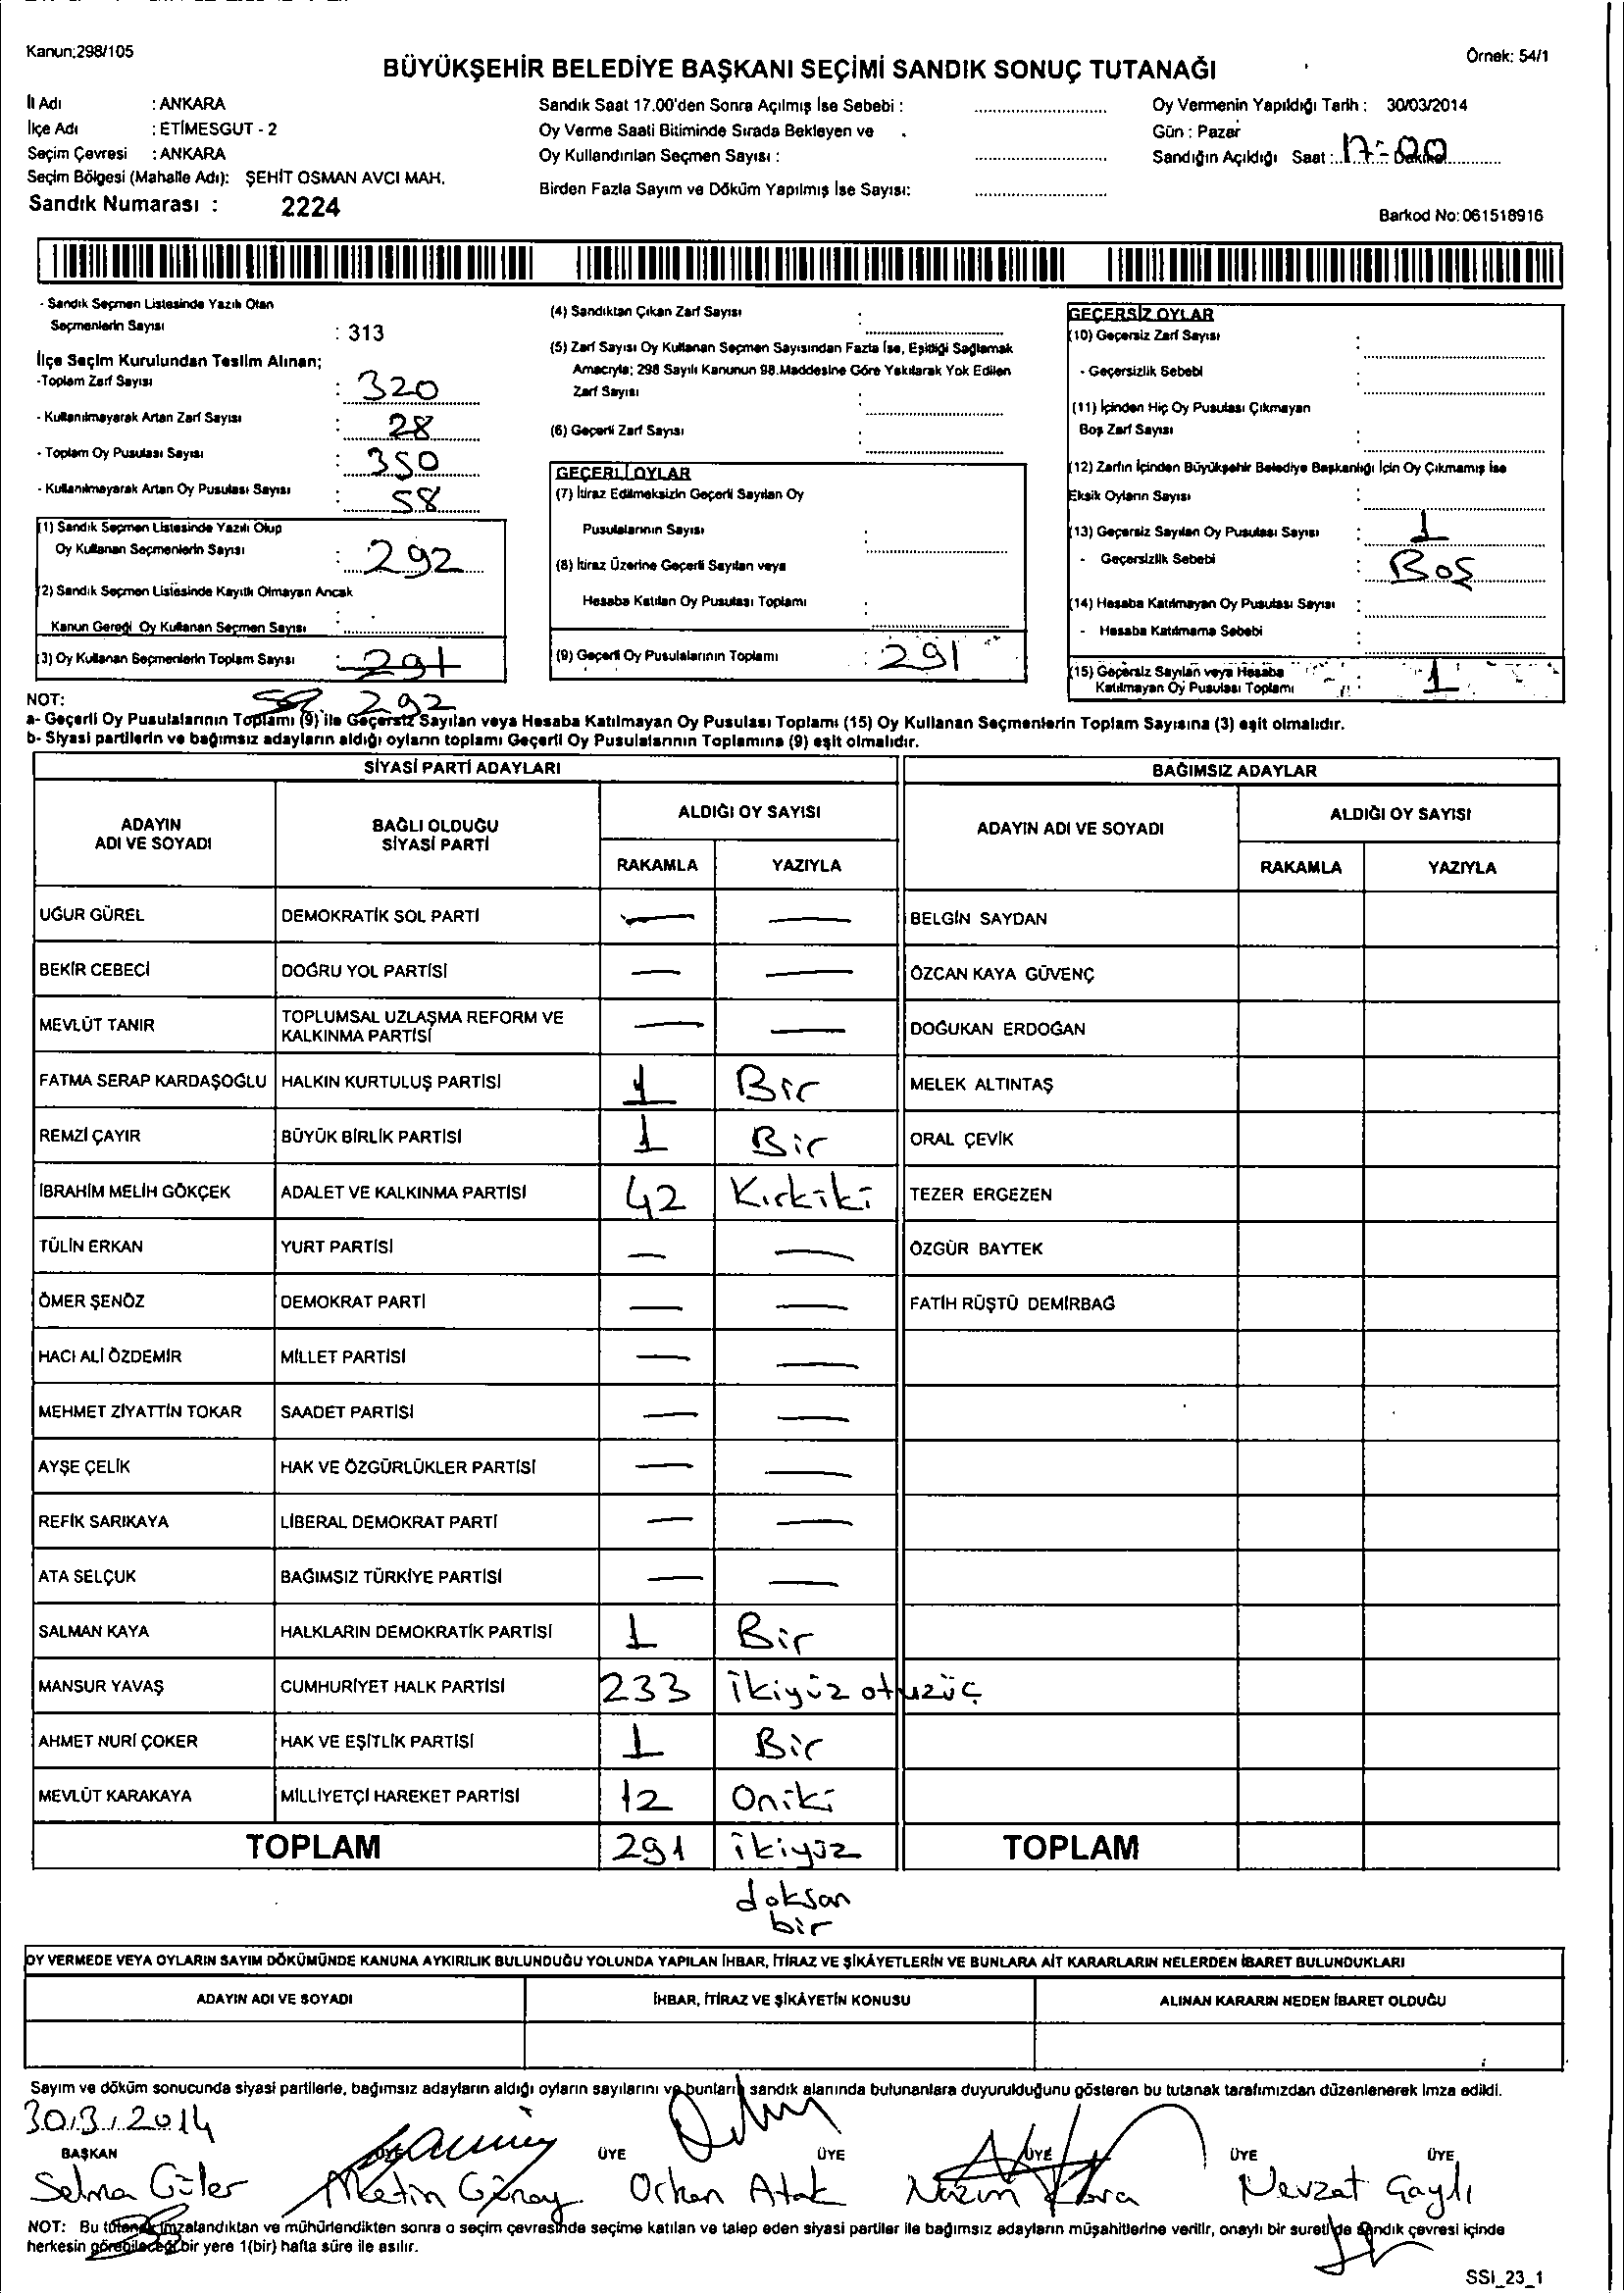 Kanun;298/105
Örnek: 54/1
BÜYÜKŞEHİR BELEDİYE BAŞKANI SEÇİMİ SANDIK SONUÇ TUTANAĞI
İl Adı : ANKARA
İlçe Adı : ETİMESGUT - 2
Seçim Çevresi : ANKARA
Seçim Bölgesi (Mahalle Adı): ŞEHİT OSMAN AVCI MAH.
Sandık Numarası : 2224
Sandık Saat 17.00'den Sonra Açılmış İse Sebebi :
Oy Verme Saati Bitiminde Sırada Bekleyen ve
Oy Kullandırılan Seçmen Sayısı :
Birden Fazla Sayım ve Döküm Yapılmış İse Sayısı:
Oy Vermenin Yapıldığı Tarih : 30/03/2014
Gün : Pazar
Sandığın Açıldığı Saat : 17:00
Barkod No: 061518916
- Sandık Seçmen Listesinde Yazılı Olan
Seçmenlerin Sayısı : 313
İlçe Seçim Kurulundan Teslim Alınan;
-Toplam Zarf Sayısı : 320
- Kullanılmayarak Artan Zarf Sayısı : 28
- Toplam Oy Pusulası Sayısı : 350
- Kullanılmayarak Artan Oy Pusulası Sayısı : 58
(1) Sandık Seçmen Listesinde Yazılı Olup
Oy Kullanan Seçmenlerin Sayısı : 292
(2) Sandık Seçmen Listesinde Kayıtlı Olmayan Ancak
Kanun Gereği Oy Kullanan Seçmen Sayısı :
(3) Oy Kullanan Seçmenlerin Toplam Sayısı : 291
292
(4) Sandıktan Çıkan Zarf Sayısı :
(5) Zarf Sayısı Oy Kullanan Seçmen Sayısından Fazla İse, Eşitliği Sağlamak
Amacıyla; 298 Sayılı Kanunun 98.Maddesine Göre Yakılarak Yok Edilen
Zarf Sayısı :
(6) Geçerli Zarf Sayısı :
GEÇERLİ OYLAR
(7) İtiraz Edilmeksizin Geçerli Sayılan Oy
Pusulalarının Sayısı :
(8) İtiraz Üzerine Geçerli Sayılan veya
Hesaba Katılan Oy Pusulası Toplamı :
(9) Geçerli Oy Pusulalarının Toplamı : 291
GEÇERSİZ OYLAR
(10) Geçersiz Zarf Sayısı :
- Geçersizlik Sebebi :
(11) İçinden Hiç Oy Pusulası Çıkmayan
Boş Zarf Sayısı :
(12) Zarfın İçinden Büyükşehir Belediye Başkanlığı İçin Oy Çıkmamış İse
Eksik Oyların Sayısı :
(13) Geçersiz Sayılan Oy Pusulası Sayısı : 1
- Geçersizlik Sebebi : Boş
(14) Hesaba Katılmayan Oy Pusulası Sayısı :
- Hesaba Katılmama Sebebi :
(15) Geçersiz Sayılan veya Hesaba
Katılmayan Oy Pusulası Toplamı : 1
NOT:
a- Geçerli Oy Pusulalarının Toplamı (9) ile Geçersiz Sayılan veya Hesaba Katılmayan Oy Pusulası Toplamı (15) Oy Kullanan Seçmenlerin Toplam Sayısına (3) eşit olmalıdır.
b- Siyasi partilerin ve bağımsız adayların aldığı oyların toplamı Geçerli Oy Pusulalarının Toplamına (9) eşit olmalıdır.
SİYASİ PARTİ ADAYLARI
BAĞIMSIZ ADAYLAR
ADAYIN
ADI VE SOYADI
BAĞLI OLDUĞU
SİYASİ PARTİ
ALDIĞI OY SAYISI
RAKAMLA YAZIYLA
ADAYIN ADI VE SOYADI
ALDIĞI OY SAYISI
RAKAMLA YAZIYLA
UĞUR GÜREL DEMOKRATİK SOL PARTİ — — BELGİN SAYDAN
BEKİR CEBECİ DOĞRU YOL PARTİSİ — — ÖZCAN KAYA GÜVENÇ
MEVLÜT TANIR TOPLUMSAL UZLAŞMA REFORM VE
KALKINMA PARTİSİ — — DOĞUKAN ERDOĞAN
FATMA SERAP KARDAŞOĞLU HALKIN KURTULUŞ PARTİSİ 1 Bir MELEK ALTINTAŞ
REMZİ ÇAYIR BÜYÜK BİRLİK PARTİSİ 1 Bir ORAL ÇEVİK
İBRAHİM MELİH GÖKÇEK ADALET VE KALKINMA PARTİSİ 42 Kırkiki TEZER ERGEZEN
TÜLİN ERKAN YURT PARTİSİ — — ÖZGÜR BAYTEK
ÖMER ŞENÖZ DEMOKRAT PARTİ — — FATİH RÜŞTÜ DEMİRBAĞ
HACI ALİ ÖZDEMİR MİLLET PARTİSİ — —
MEHMET ZİYATTİN TOKAR SAADET PARTİSİ — —
AYŞE ÇELİK HAK VE ÖZGÜRLÜKLER PARTİSİ — —
REFİK SARIKAYA LİBERAL DEMOKRAT PARTİ — —
ATA SELÇUK BAĞIMSIZ TÜRKİYE PARTİSİ — —
SALMAN KAYA HALKLARIN DEMOKRATİK PARTİSİ 1 Bir
MANSUR YAVAŞ CUMHURİYET HALK PARTİSİ 233 ikiyüz otuzüç
AHMET NURİ ÇOKER HAK VE EŞİTLİK PARTİSİ 1 Bir
MEVLÜT KARAKAYA MİLLİYETÇİ HAREKET PARTİSİ 12 Oniki
TOPLAM 291 ikiyüz TOPLAM
doksan
bir
OY VERMEDE VEYA OYLARIN SAYIM DÖKÜMÜNDE KANUNA AYKIRILIK BULUNDUĞU YOLUNDA YAPILAN İHBAR, İTİRAZ VE ŞİKÂYETLERİN VE BUNLARA AİT KARARLARIN NELERDEN İBARET BULUNDUKLARI
ADAYIN ADI VE SOYADI İHBAR, İTİRAZ VE ŞİKÂYETİN KONUSU ALINAN KARARIN NEDEN İBARET OLDUĞU
Sayım ve döküm sonucunda siyasi partilerle, bağımsız adayların aldığı oyların sayılarını ve bunların sandık alanında bulunanlara duyurulduğunu gösteren bu tutanak tarafımızdan düzenlenerek imza edildi.
30.3.2014
BAŞKAN ÜYE ÜYE ÜYE ÜYE ÜYE ÜYE
Selma Güler Metin Günay Orkan Atak Nazım Kara Nevzat Gaydı
NOT: Bu tutanak imzalandıktan ve mühürlendikten sonra o seçim çevresinde seçime katılan ve talep eden siyasi partiler ile bağımsız adayların müşahitlerine verilir, onaylı bir sureti de sandık çevresi içinde
herkesin görebileceği bir yere 1(bir) hafta süre ile asılır.
SSI_23_1